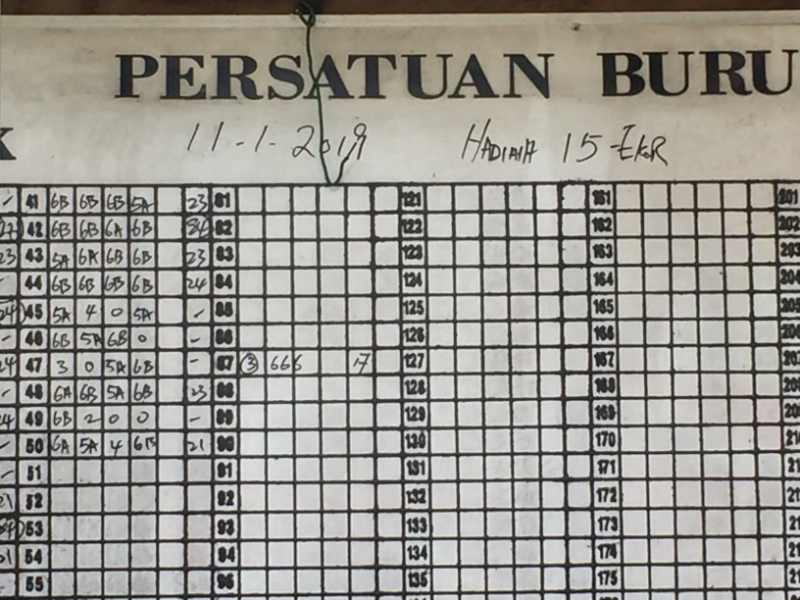 PERSATUAN BURU
11-1-2019 HADIAH 15-EKOR
41 6B 6B 6B 5A 23 81 121 161 201
42 6B 6B 6A 6B 82 122 162 202
23 43 5A 6A 6B 6B 23 83 123 163 203
- 44 6B 6B 6B 6B 24 84 124 164 204
24 45 5A 4 0 5A - 85 125 165 205
- 46 6B 5A 6B 0 - 86 126 166 206
24 47 3 0 5A 6B - 87 3 666 17 127 167 207
- 48 6A 6B 5A 6B 23 88 128 168 208
24 49 6B 2 0 0 - 89 129 169 209
- 50 6A 5A 4 6B 21 90 130 170 21
- 51 91 131 171 21
21 52 92 132 172 21
53 93 133 173 21
54 94 134 174 21
- 55 95 135 175 21